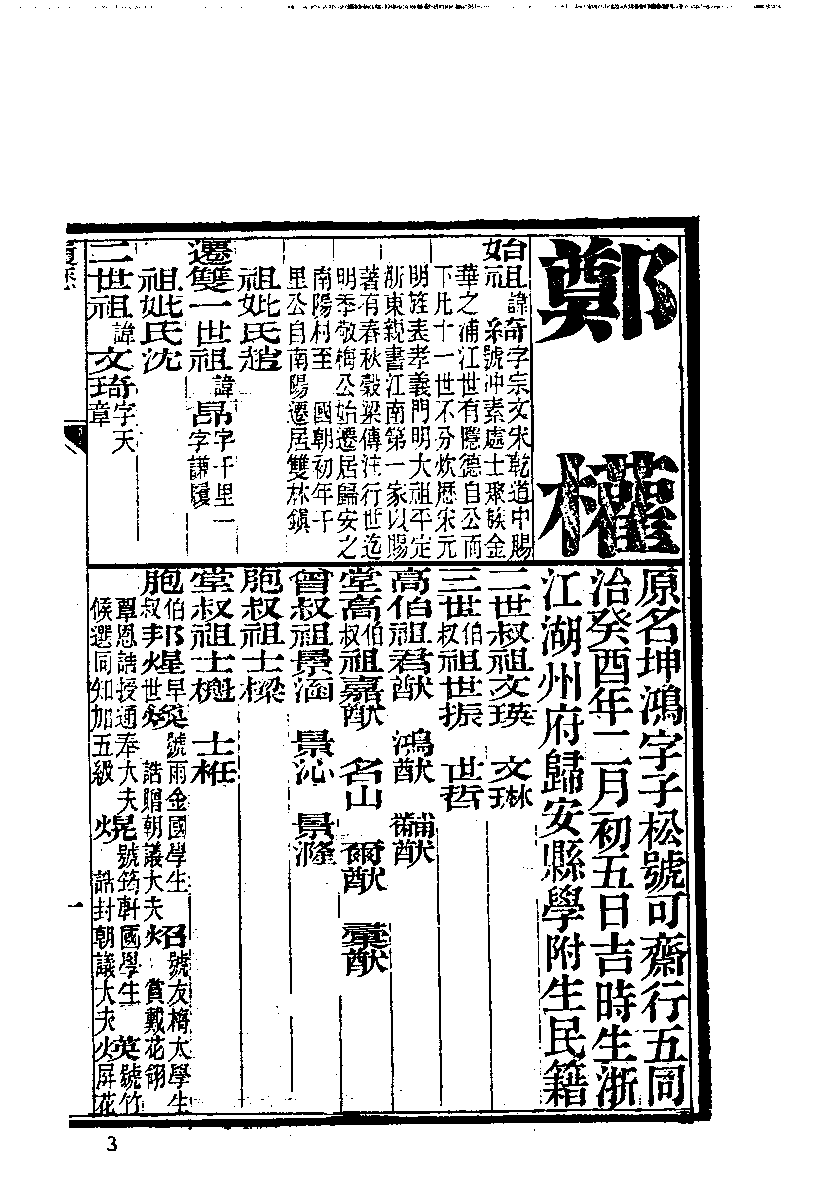 鄭權
原名坤鴻字子松號可齋行五同
治癸酉年二月初五日吉時生浙
江湖州府歸安縣學附生民籍
始祖諱綺字宗文宋乾道中賜
號沖素處士聚族金
華之浦江世有隱德自公而
下凡十一世不分炊歷宋元
明旌表孝義門明太祖平定
浙東親書江南第一家以賜
著有春秋穀梁傳注行世迄
明季敬梅公始遷居歸安之
南陽村至 國朝初年千
里公自南陽遷居雙林鎮
祖妣氏趙
遷雙一世祖諱昂字千里一
字謙
祖妣氏沈
二世祖諱文琦字天
章
二世叔祖文瑛 文琳
三世伯叔祖世振 世哲
高伯祖君猷 鴻猷 黼猷
堂高伯叔祖嘉猷 名山 爾猷 彙猷
曾叔祖景涵 景沁 景隆
胞叔祖士樑
堂叔祖士樾 士桩
胞伯叔邦煋早世煥號雨金國學生誥贈朝議大夫炤號友梅太學生賞戴花翎
覃恩誥授通奉大夫晃號筠軒國學生
候選同知加五級誥封朝議大夫英號竹
屏花
履歷
一
3